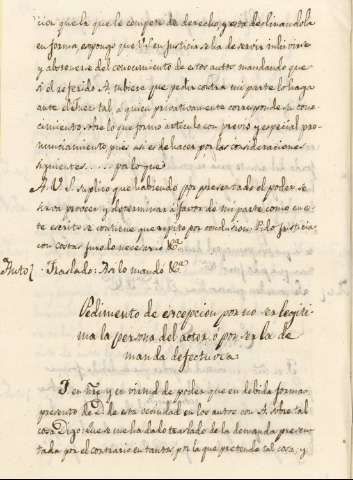 cion que le que le compete de derecho, y esta declinandola
en forma, expongo que V.S. en justicia se ha de servir inhivirse
y abstenerse del conocimiento de estos autos mandando que
si el referido A. tubiere que pedir contra mi parte lo haga
ante el Juez tal, a quien privativamente corresponde su cono-
cimiento, sobre lo que formo articulo con previo y especial pro-
nunciamiento, pues asi es de hacer por las consideraciones
siguientes...... por lo que
A. V. S. suplico que habiendo por presentado el poder, se
sirva proveer y determinar a favor de mi parte como en es-
te escrito se contiene que repito por conclusion. Pido justicia
con costas juro lo necesario &ca
Auto} Traslado: Asi lo mandó &ca
Pedimento de excepcion por no ser legiti-
ma la persona del actor, o por ser la de-
manda defectuosa
J. en nre. y en virtud de poder que en debida forma
presento de D. de esta vecindad en los autos con A. sobre tal
cosa Digo: Que se me ha dado traslado de la demanda presen-
tada por el contrario en tantos, por la que pretende tal cosa; y